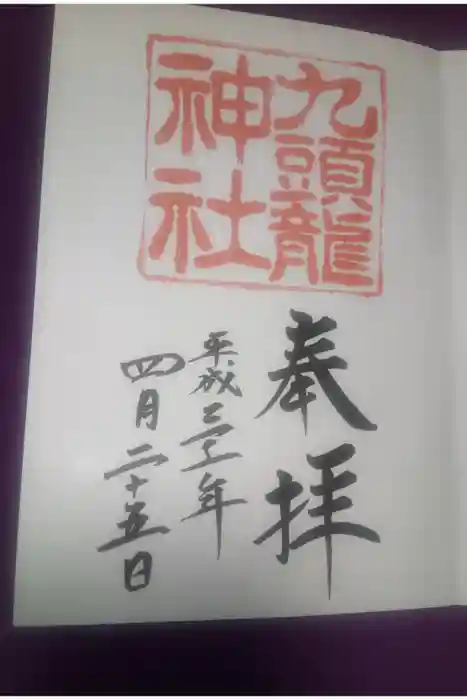 九頭龍
神社
奉拝
平成三十一年
四月二十五日